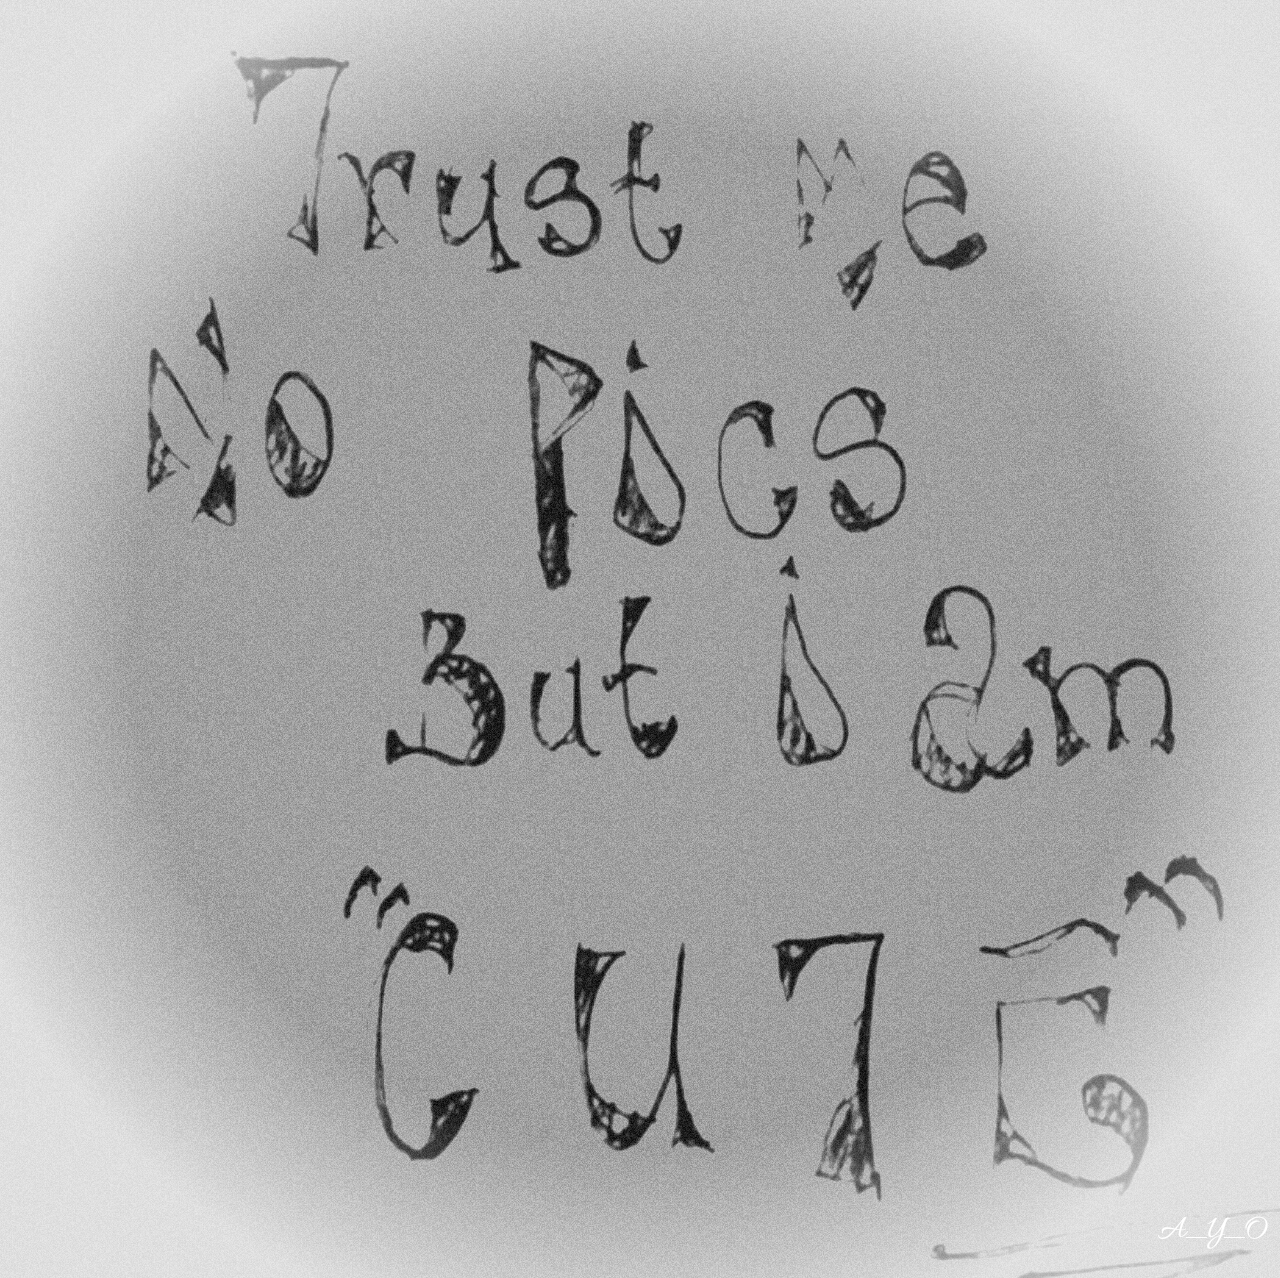 Trust Me
No pics
But i am
"CUTE"
A_Y_O